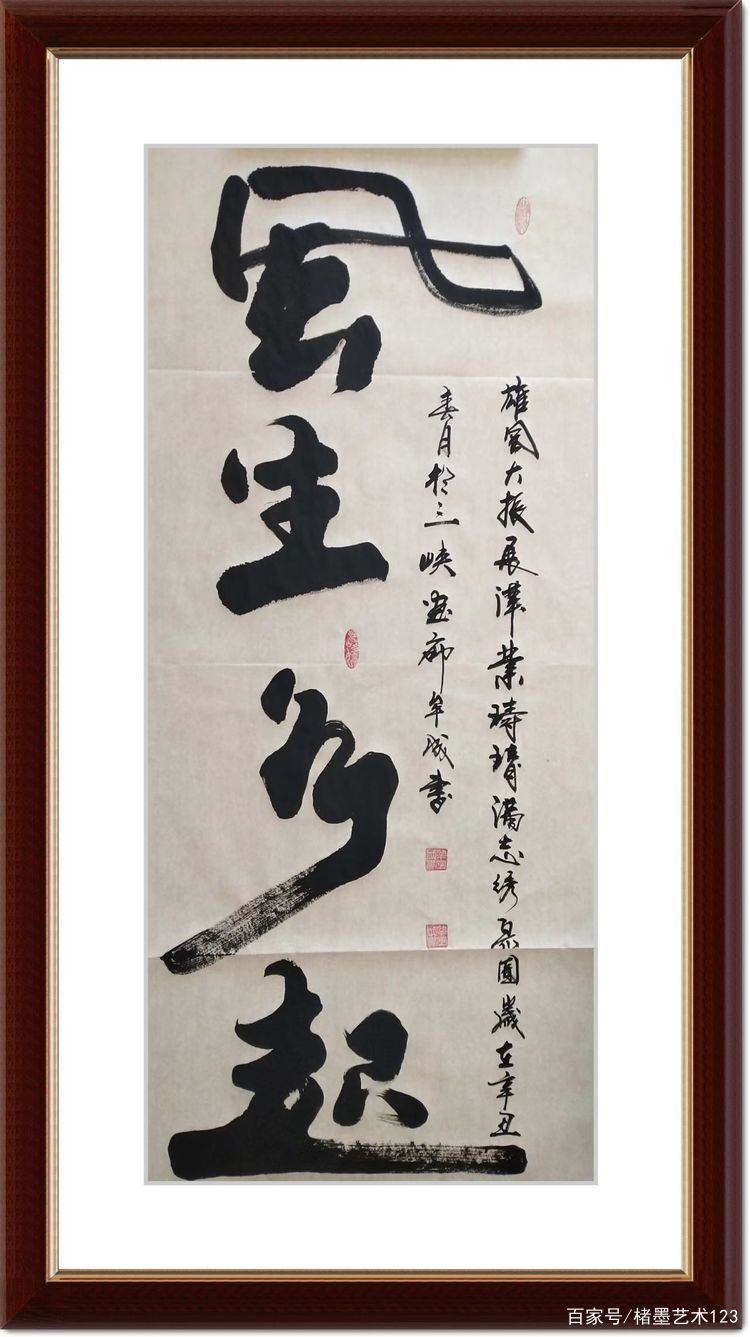 風生水起
雄大振展業琦滿志綉圓歲在辛丑
春月於三峽畫廊牟成書
百家号/楮墨艺术123